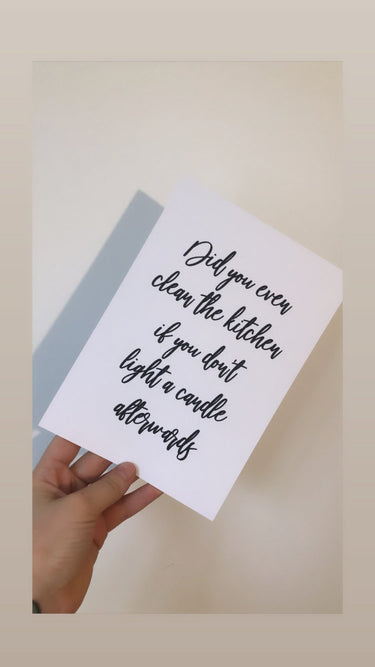 Did you even
clean the kitchen
if you don't
light a candle
afterwards